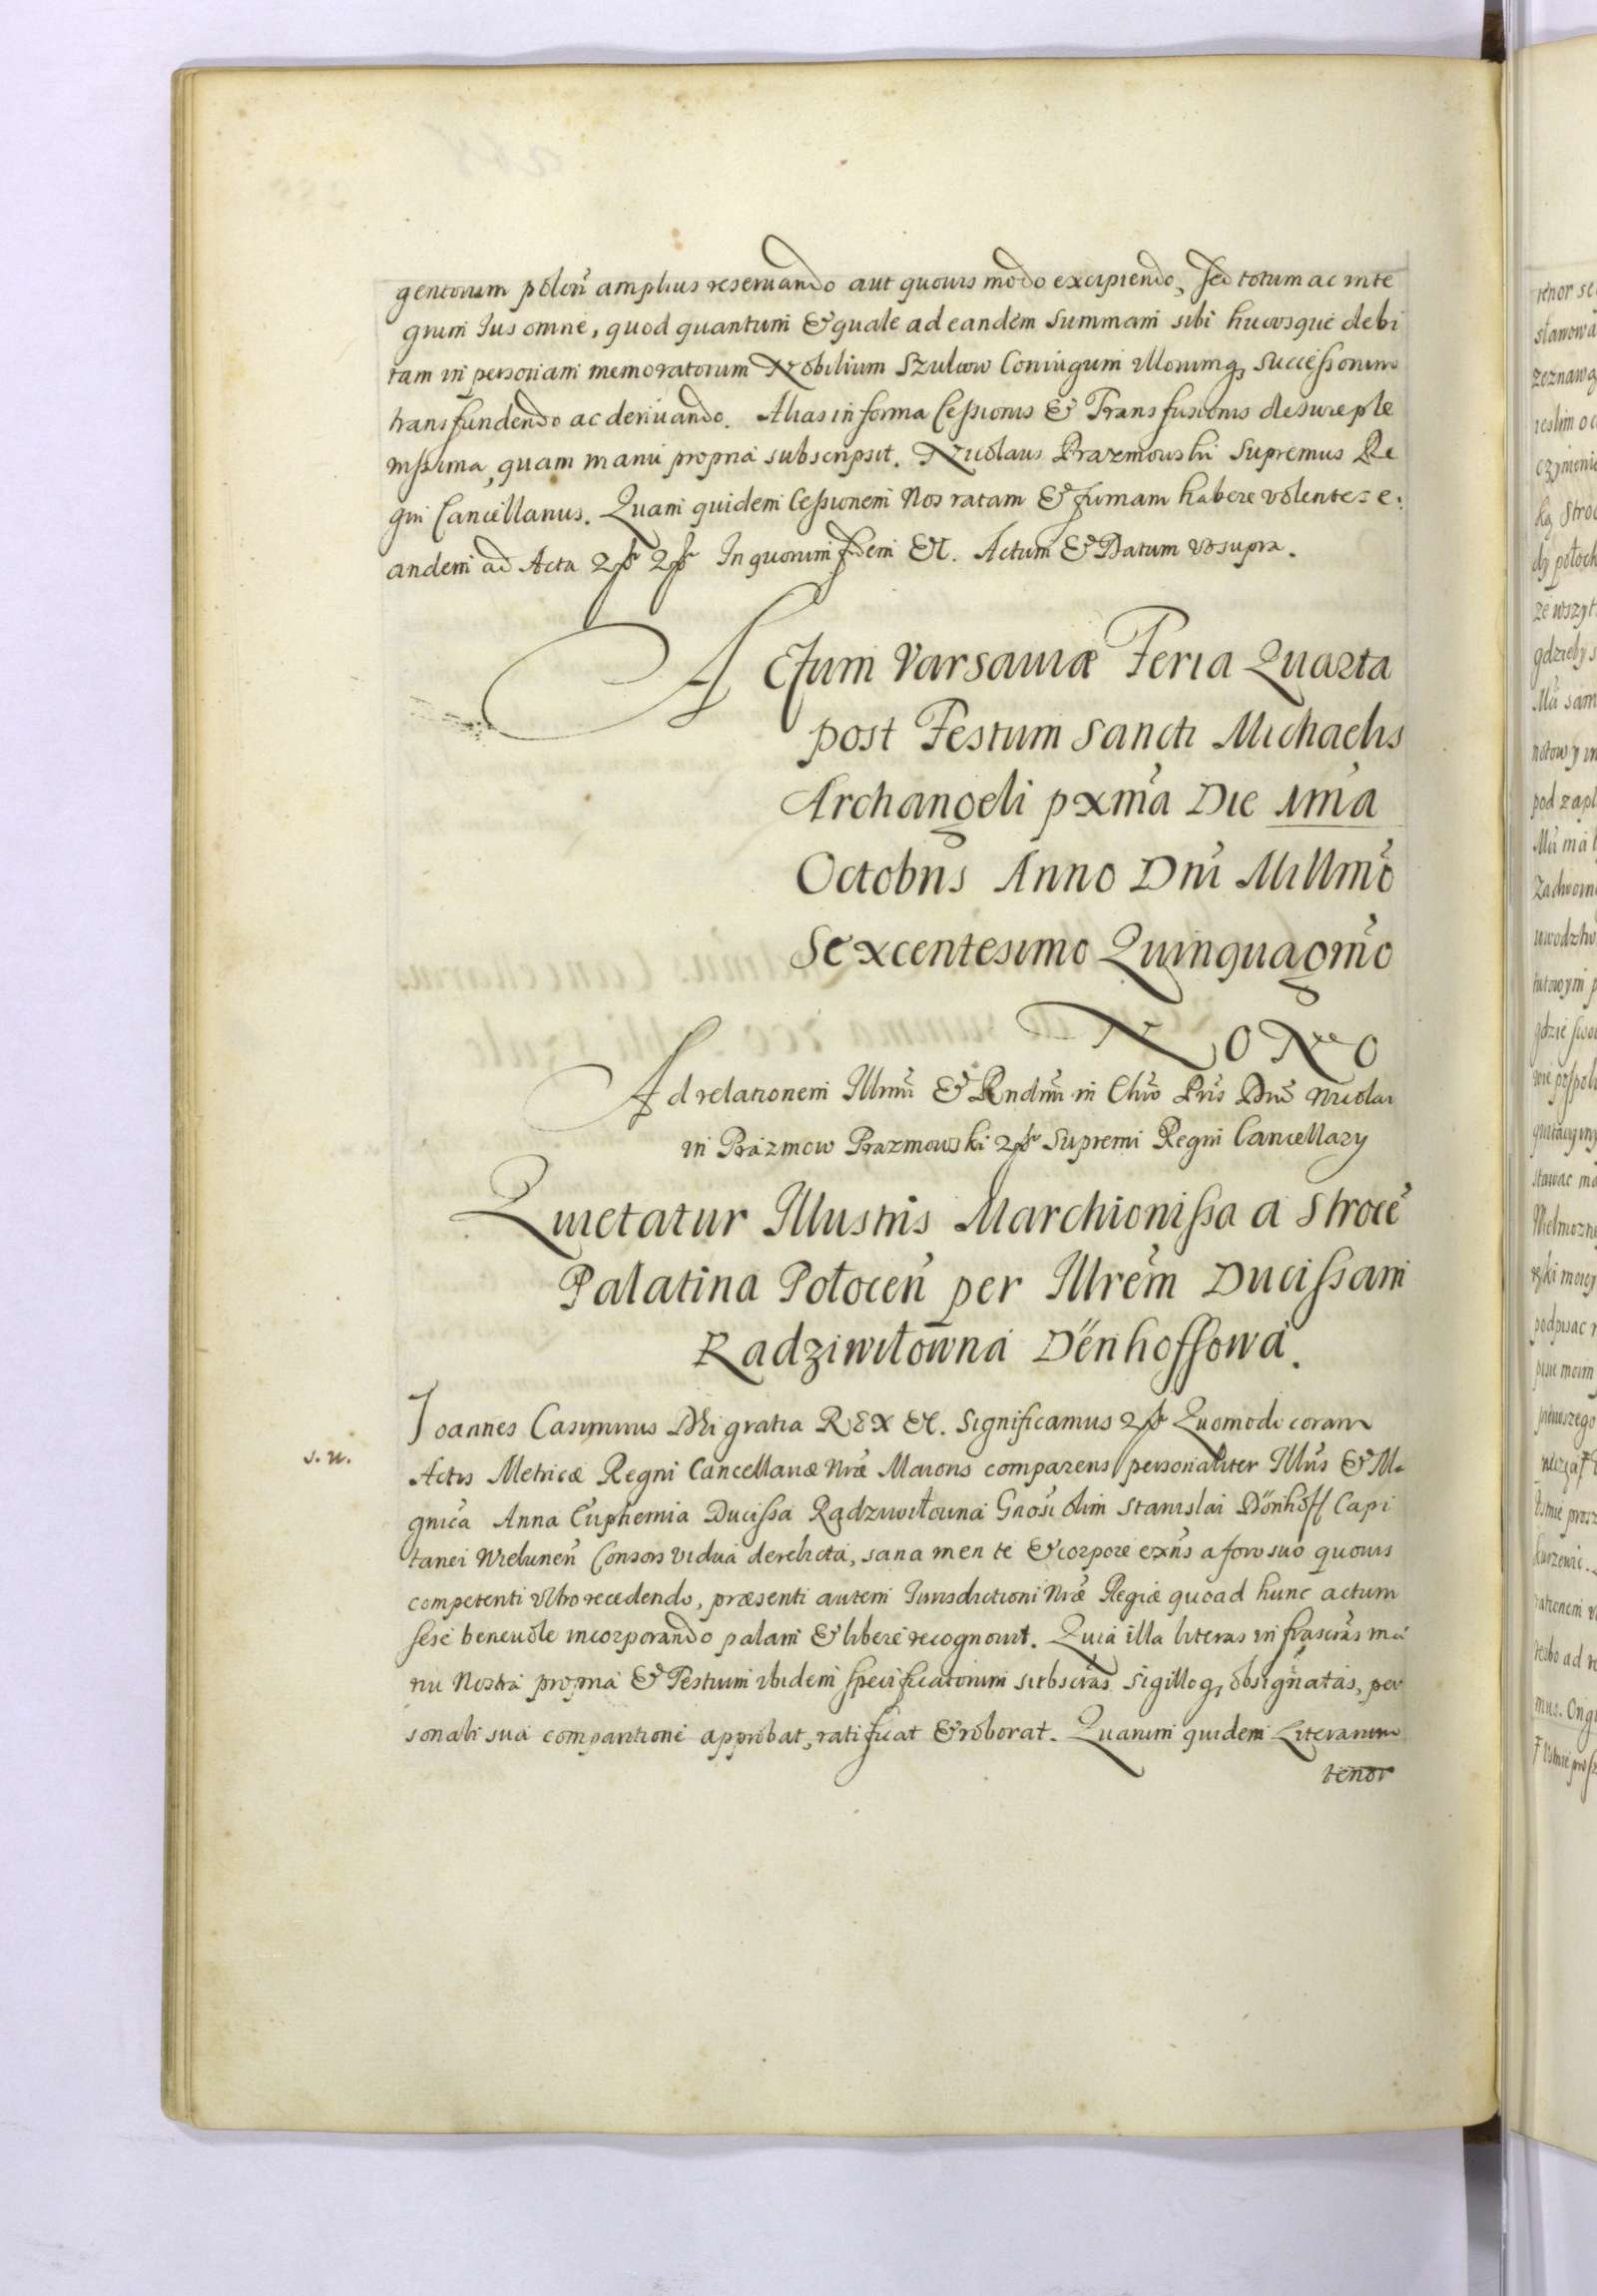 gentorum polon̄ amplius reseruando aut quouis modo excipiendo, sed totum ac inte
grum Ius omne, quod quantum & quale ad eandem summam sibi hucusque debi
tam in personam memoratorum Nobilium Szulcow Coniugum illorumq̨ successorum
transfundendo ac deriuando. Alias in forma Cessionis & Transfusionis de iure ple
nissima, quam manu propria subscripsit. Nicolaus Prazmowski Supremus Re
gni Cancellarius. Quam quidem Cessionem Nos ratam & firmam habere volentes e:
andem ad Acta In quorum fidem &c. Actum & Datum vt supra.
Actum Varsauiæ Feria Quarta
post Festum Sancti Michaelis
Archangeli pxm̄a Die 1m̄a
Octobris Anno Dn̄i Millm̄o
Sexcentesimo Quinquagm̄o
NoNo
Ad relationem Illmi & Rndmi in Chro Pris Dni Nicolai
in Prazmow Prazmowski Supremi Regni Cancellarÿ
Quietatur Illustris Marchionissa a Stroce
Palatina Połocen̄ per Illrem Ducissam
Radziwiłowna Dënhoffowa.
Ioannes Casimirus Dei gratia Rex &c. Significamus Quomodo coram
s. n.
Actis Metricæ Regni Cancellariæ Nræ Maioris comparens personaliter Illris & Ma
gnica Anna Euphemia Ducissa Radziwiłowna Gnosi olim Stanislai Dönhoff Capi
tanei Wielunen̄ Consors vidua derelicta, sana mente & corpore exn̄s a foro suo quouis
competenti vltro recedendo, præsenti autem Iurisdictioni Nræ Regiæ quoad hunc actum
sese beneuole incorporando palam & libere recognouit. Quia illa literas infrascr̄as ma
nu Nostra propria & Testium ibidem specificatorum subscr̄as sigilloq̨ obsignatas, per
sonali sua comparitione approbat, ratificat & roborat. Quarum quidem Literarum
tenor